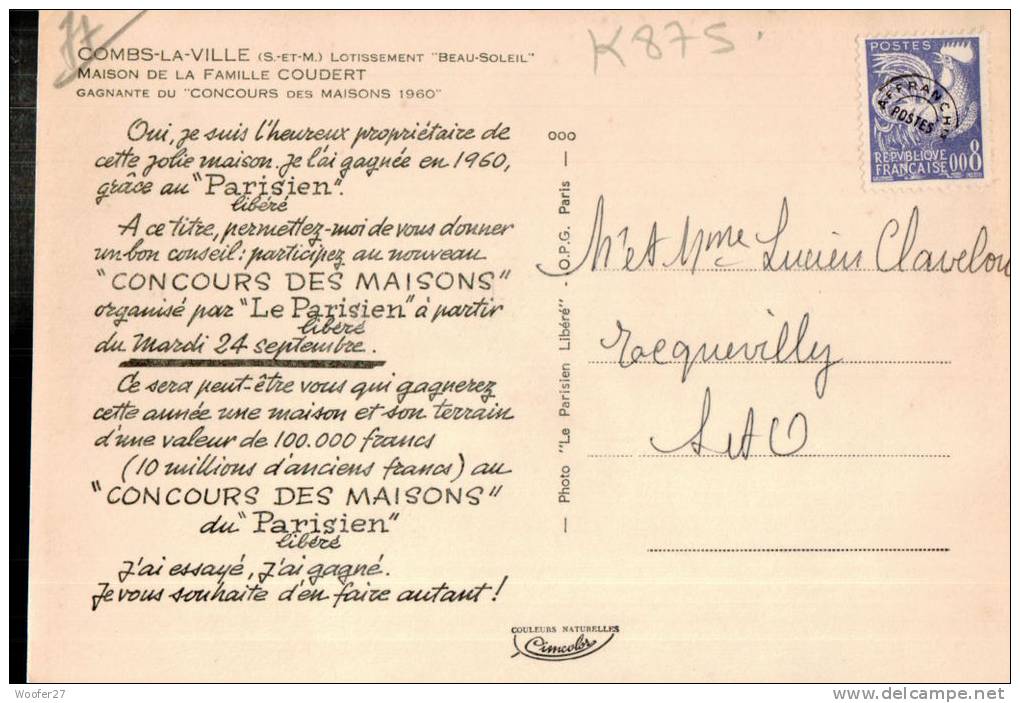 77
K87S.
COMBS-LA-VILLE (S.-ET-M.) LOTISSEMENT "BEAU-SOLEIL"
MAISON DE LA FAMILLE COUDERT
GAGNANTE DU "CONCOURS DES MAISONS 1960"
Oui, je suis l'heureux propriétaire de
cette jolie maison. Je l'ai gagnée en 1960,
grâce au "Parisien".
libéré
A ce titre, permettez-moi de vous donner
un bon conseil : participez au nouveau
"CONCOURS DES MAISONS"
organisé par "Le Parisien" à partir
libéré
du Mardi 24 septembre.
Ce sera peut-être vous qui gagnerez
cette année une maison et son terrain
d'une valeur de 100.000 francs
(10 millions d'anciens francs) au
"CONCOURS DES MAISONS"
du "Parisien"
libéré
J'ai essayé, J'ai gagné.
Je vous souhaite d'en faire autant !
— Photo "Le Parisien Libéré" - O.P.G. Paris — 000
POSTES
AFFRANCHts
POSTES
REPVBLIQVE
FRANÇAISE 0,08
Mr et Mme Lucien Clavelou
Tecquevilly
S et O
COULEURS NATURELLES
Cimcolor
Woofer27
delcampe.net